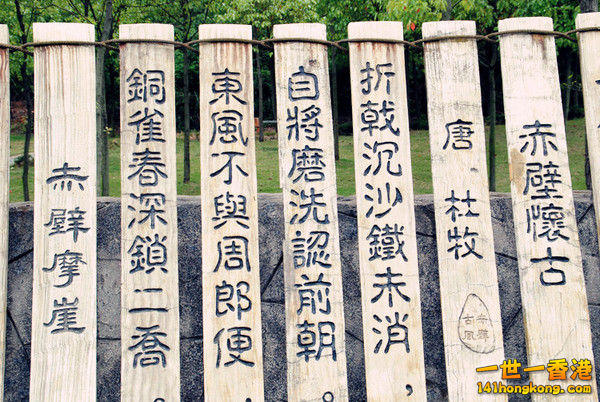 赤壁懷古
唐．杜牧
折戟沉沙鐵未消，
自將磨洗認前朝。
東風不與周郎便，
銅雀春深鎖二喬。
赤壁摩崖
一世一香港
141hongkong.com